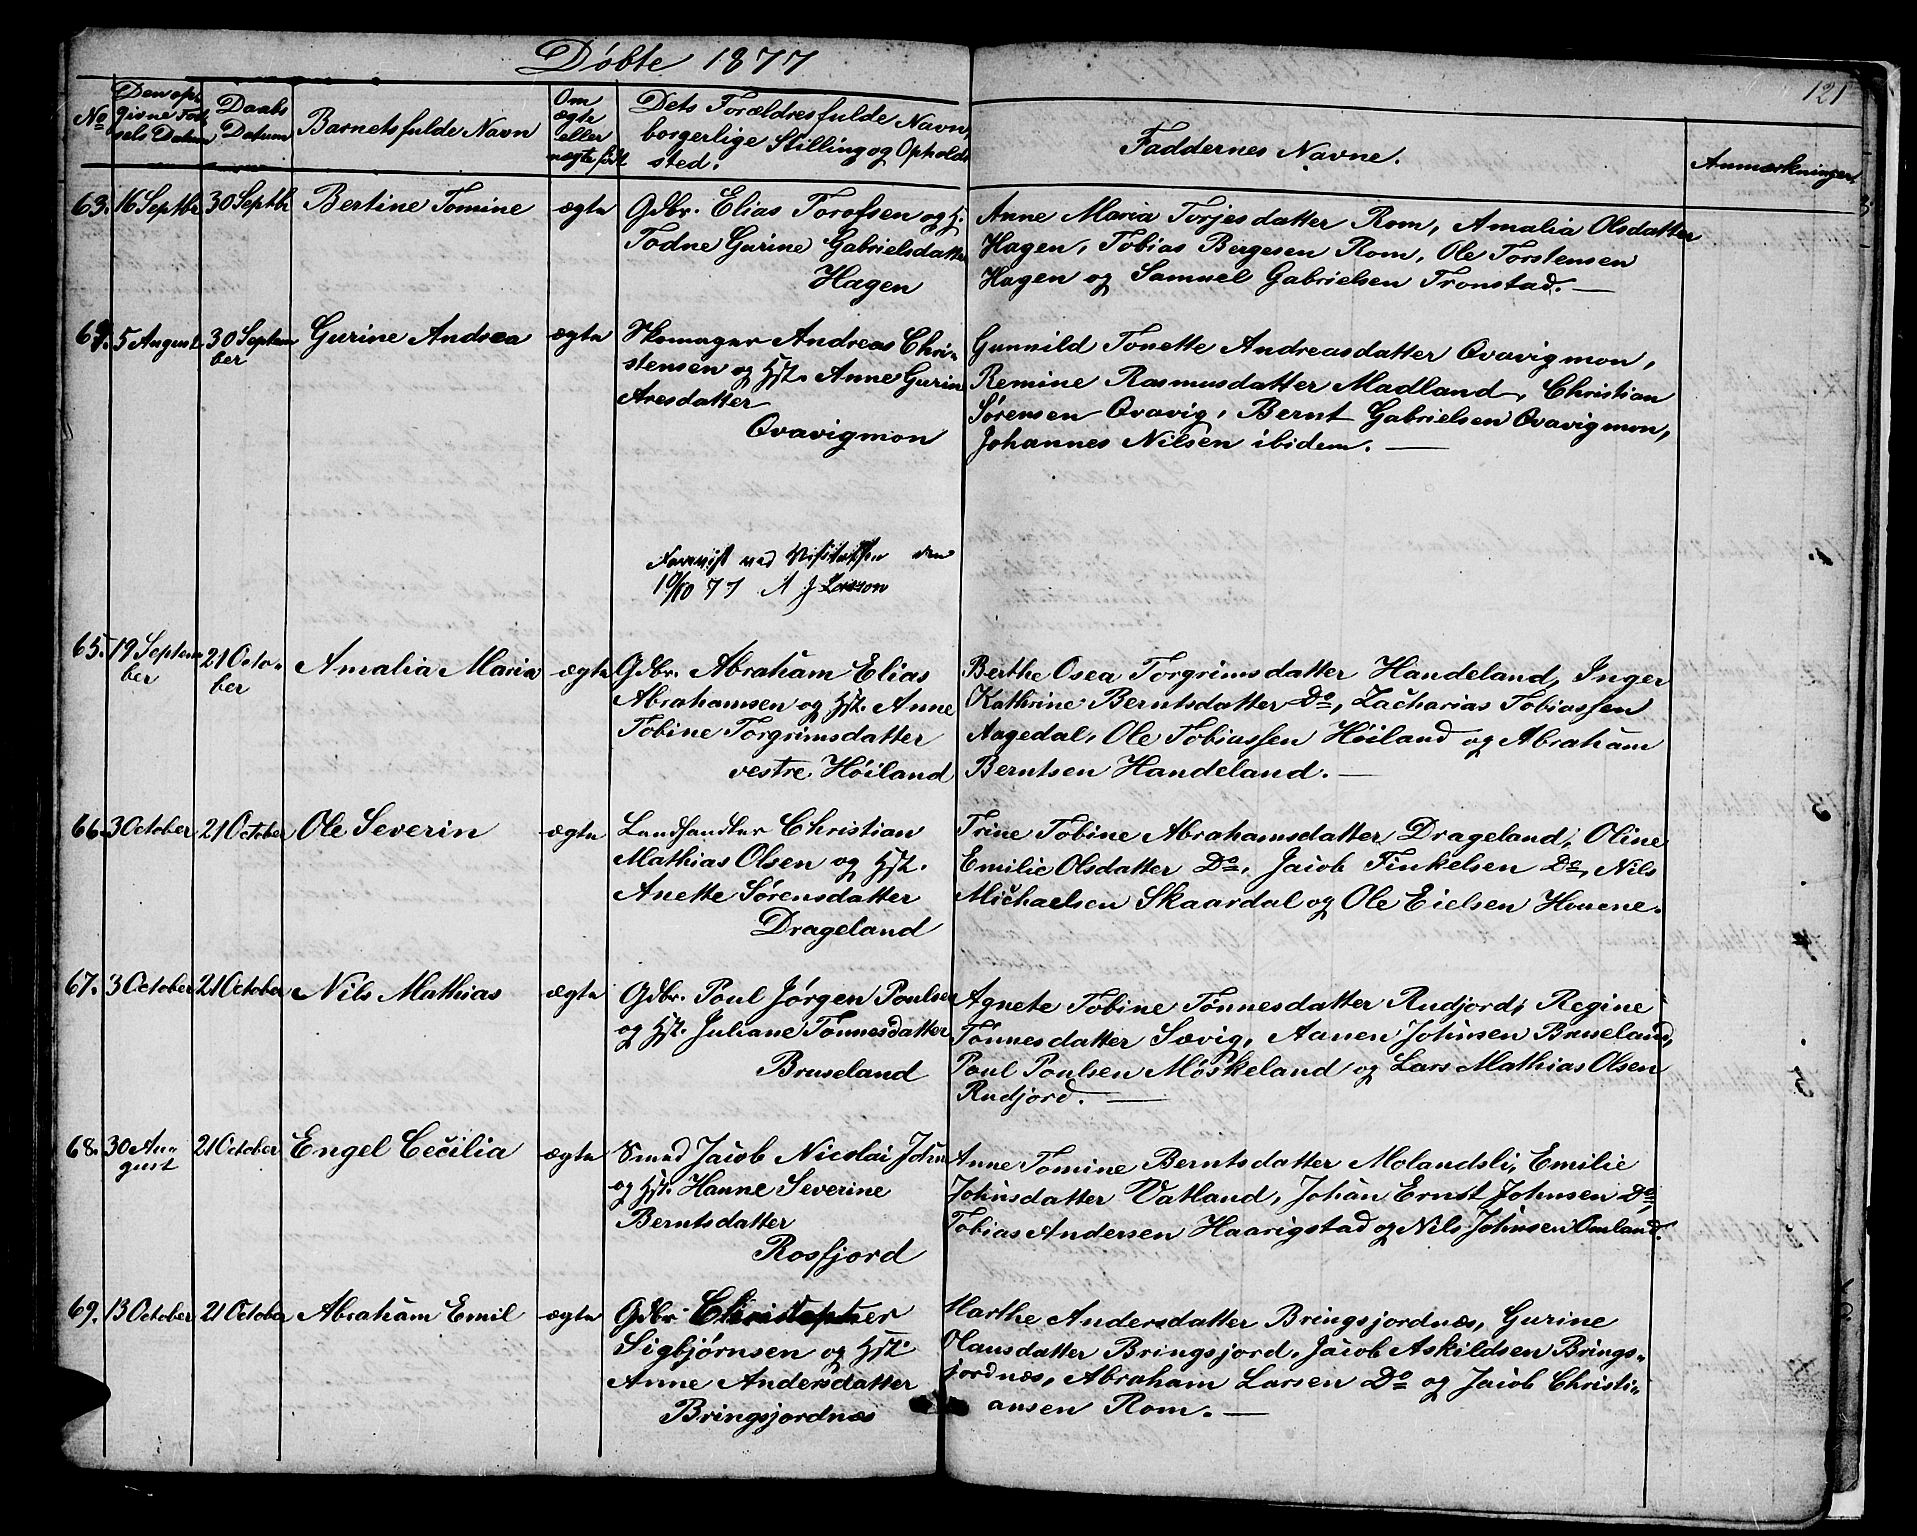 Døbte 1877
121
No
Den op-
givne Fød-
sels Datum
Daabs
Datum
Barnets fulde Navn
Om
ægte
eller
uægte født
Dets Forældres fulde Navn,
borgerlige Stilling og Opholds
sted.
Faddernes Navne.
Anmærkninger.
63. 16 Septbr 30 Septbr Bertine Tomine ægte
Gdbr. Elias Torofsen og H.
Todne Gurine Gabrielsdatter
Hagen
Anne Maria Torjesdatter Rom, Amalia Olsdatter
Hagen, Tobias Bergesen Rom, Ole Torstensen
Hagen og Samuel Gabrielsen Tronstad. —
64. 5 August 30 Septem
ber
Gurine Andrea ægte
Skomager Andreas Chri-
stensen og Hst. Anne Gurin
Aresdatter
Qvavigmon
Gunnild Tonette Andreasdatter Qvavigmon,
Remine Rasmusdatter Madland, Christian
Sørensen Qvavig, Bernt Gabrielsen Qvavigmon,
Johannes Nilsen ibidem. —
Forevist ved Visitatsen den
10/10 77 A J Larsson
65. 19 Septem
ber
21 Octo-
ber
Amalia Maria ægte
Gdbr. Abraham Elias
Abrahamsen og Hst. Anne
Tobine Torgrimsdatter
vestre Høiland
Berthe Osea Torgrimsdatter Handeland, Inger
Kathrine Berntsdatter Do, Zacharias Tobiassen
Aagedal, Ole Tobiassen Høiland og Abraham
Berntsen Handeland. —
66. 3 October 21 October Ole Severin ægte
Landhandler Christian
Mathias Olsen og Hst.
Anette Sørensdatter
Drageland
Trine Tobine Abrahamsdatter Drageland, Oline
Emilie Olsdatter Do, Jacob Finkelsen Do, Nils
Michaelsen Skaardal og Ole Eielsen Houene.
67. 3 October 21 October Nils Mathias ægte
Gdbr. Poul Jørgen Poulsen
og Hst. Juliane Tønnesdatter
Bruseland
Agnete Tobine Tønnesdatter Rudjord, Regine
Tønnesdatter Sævig, Aanen Johnsen Bruseland,
Poul Poulsen Møskeland og Lars Mathias Olsen
Rudjord. —
68. 30 Au-
gust
21 October Engel Cecilia ægte
Smed Jacob Nicolai John
og Hst. Hanne Severine
Berntsdatter
Rosfjord
Anne Tomine Berntsdatter Molandsli, Emilie
Johnsdatter Vatland, Johan Ernst Johnsen Do,
Tobias Andersen Haarigstad og Nils Johnsen Omland.
69. 13 October 21 October Abraham Emil ægte
Gdbr. Christopher
Sigbjørnsen og Hst.
Anne Andersdatter
Bringsjordnæs
Marthe Andersdatter Bringsjordnæs, Gurine
Olausdatter Bringsjord, Jacob Askildsen Brings-
jordnæs, Abraham Larsen Do og Jacob Christi-
ansen Rom. —